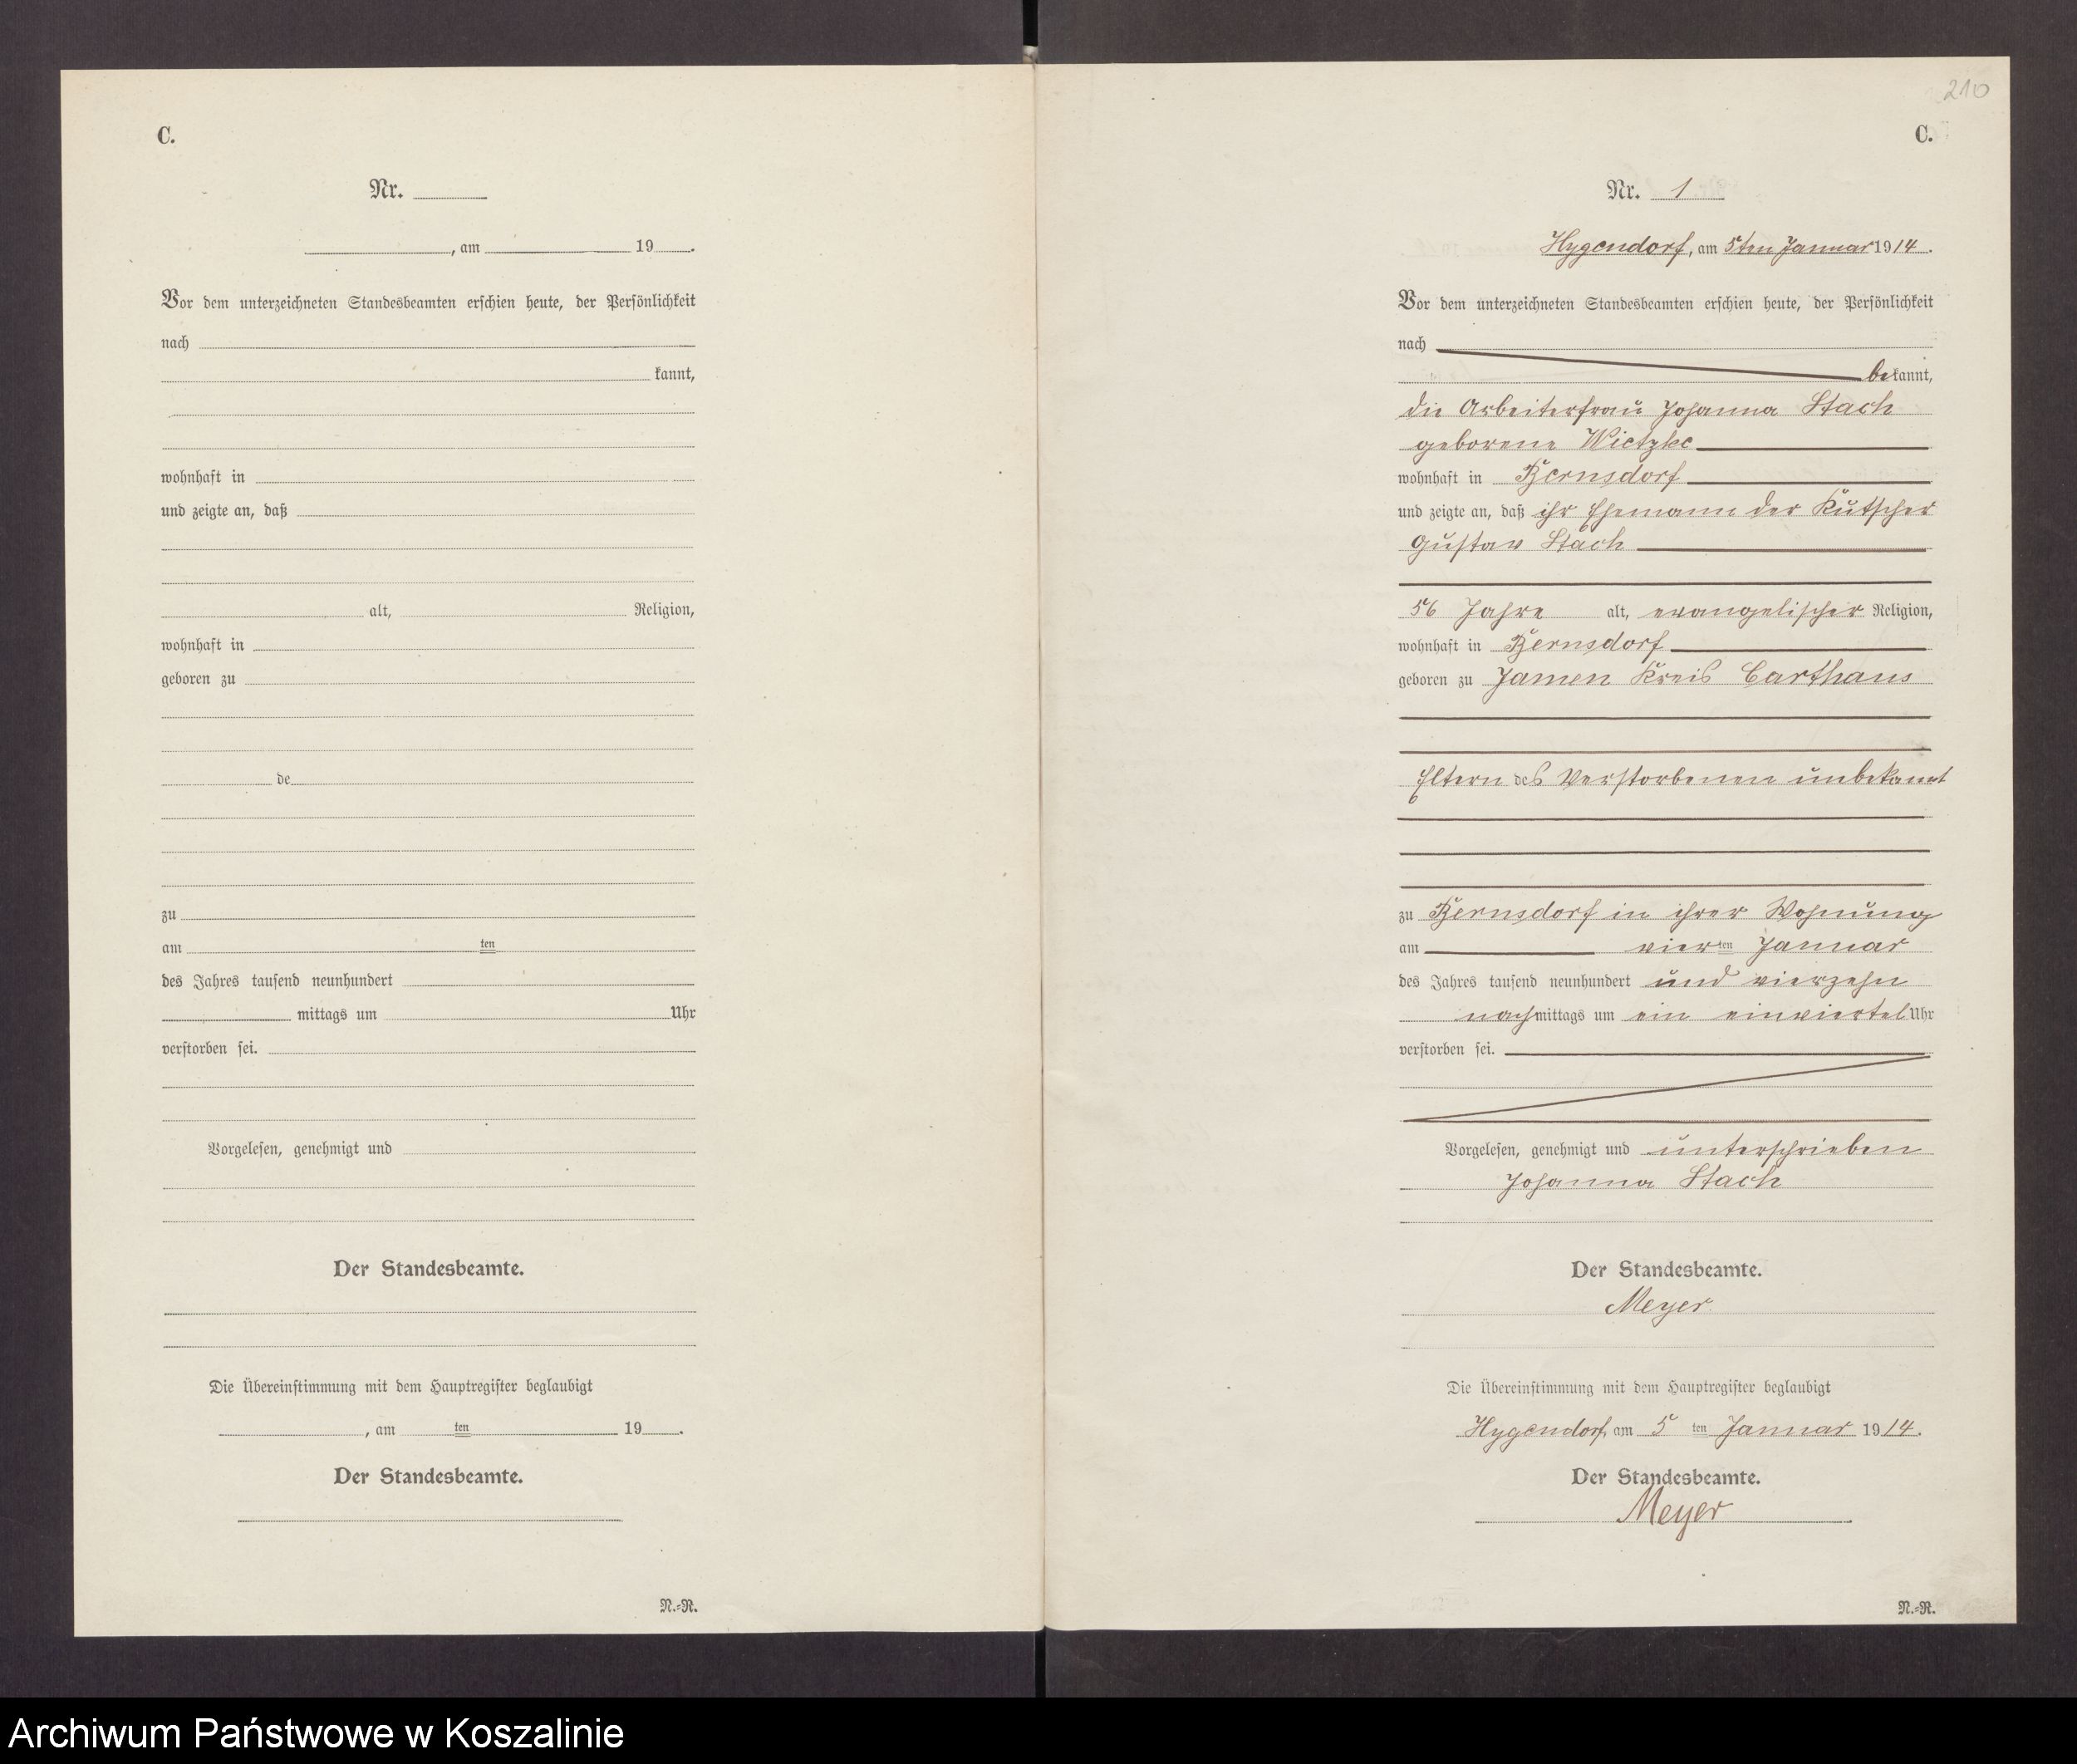 C.
Nr.
, am 19 .
Vor dem unterzeichneten Standesbeamten erschien heute, der Persönlichkeit
nach
kannt,
wohnhaft in
und zeigte an, daß
alt, Religion,
wohnhaft in
geboren zu
de
zu
am ten
des Jahres tausend neunhundert
mittags um Uhr
verstorben sei.
Vorgelesen, genehmigt und
Der Standesbeamte.
Die Übereinstimmung mit dem Hauptregister beglaubigt
, am ten 19 .
Der Standesbeamte.
N.=R.
210
C.
Nr. 1
Hygendorf, am 5ten Januar 1914.
Vor dem unterzeichneten Standesbeamten erschien heute, der Persönlichkeit
nach
bekannt,
die Arbeiterfrau Johanna Stach
geborene Wietzke
wohnhaft in Bernsdorf
und zeigte an, daß ihr Ehemann der Kutscher
Gustav Stach
56 Jahre alt, evangelischer Religion,
wohnhaft in Bernsdorf
geboren zu Jamen Kreis Carthaus
Eltern des Verstorbenen unbekannt
zu Bernsdorf in ihrer Wohnung
am vierten Januar
des Jahres tausend neunhundert und vierzehn
nachmittags um ein einviertel Uhr
verstorben sei.
Vorgelesen, genehmigt und unterschrieben
Johanna Stach
Der Standesbeamte.
Meyer
Die Übereinstimmung mit dem Hauptregister beglaubigt
Hygendorf, am 5 ten Januar 1914.
Der Standesbeamte.
Meyer
N.=R.
Archiwum Państwowe w Koszalinie